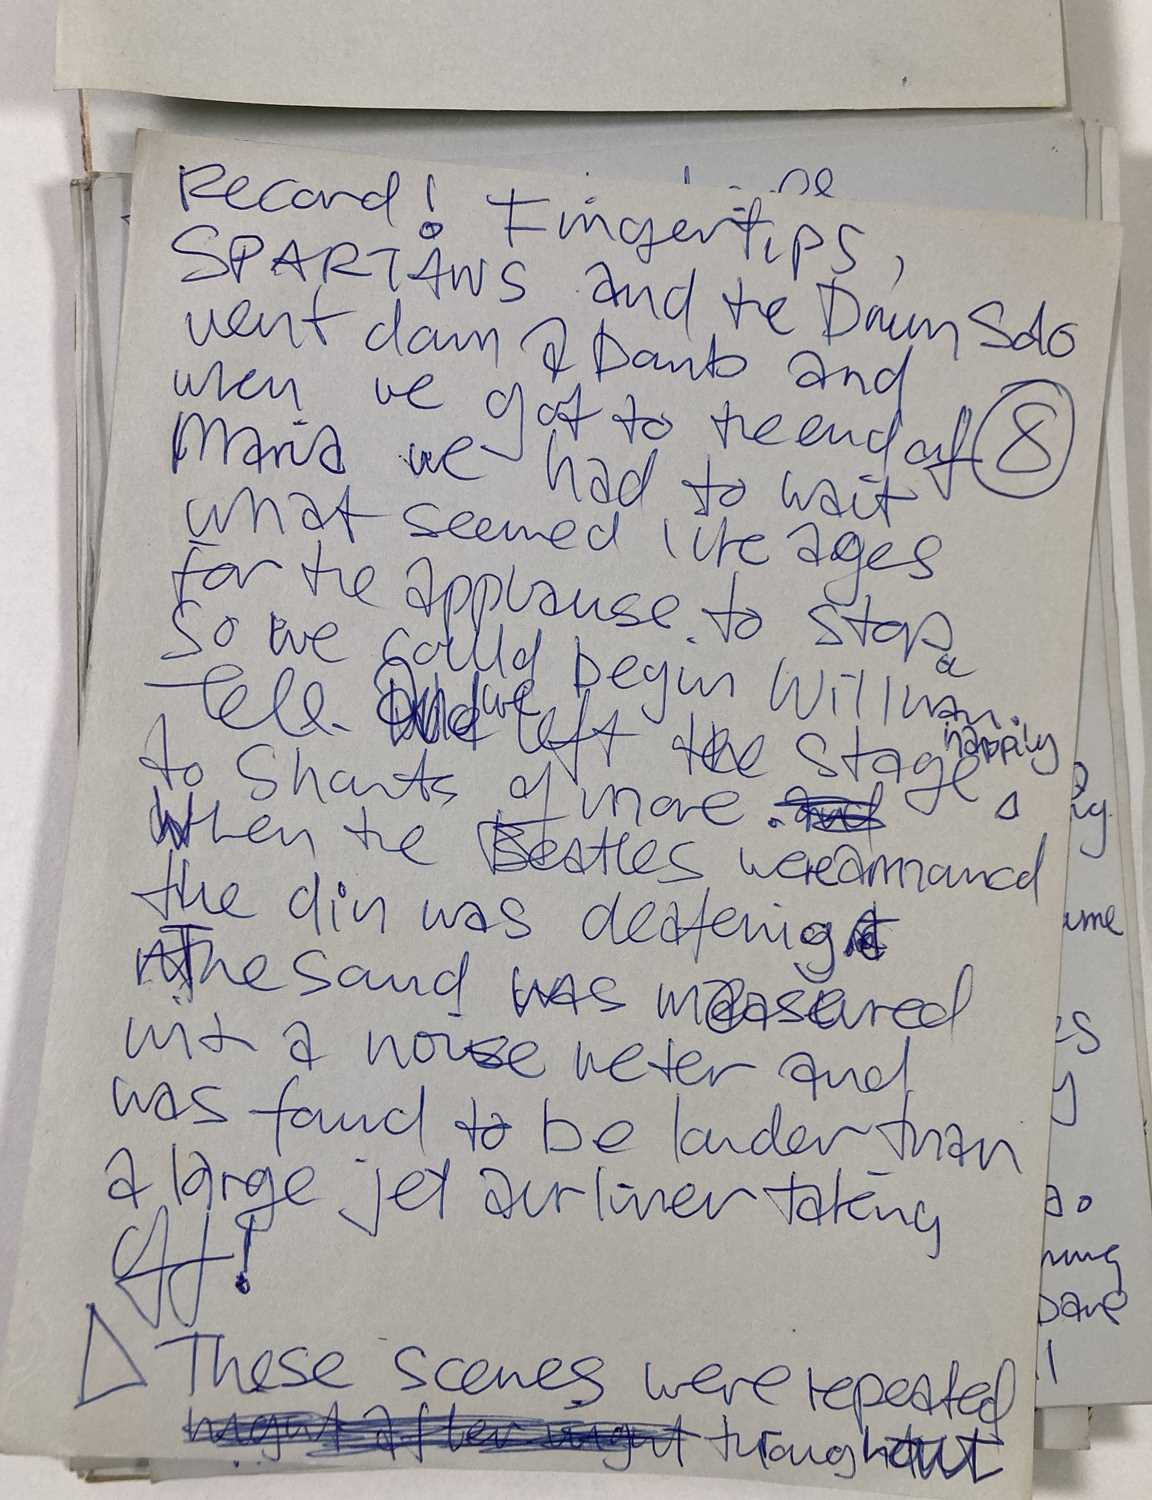 Record! Fingertips,
SPARTANS and the Drum Solo
went down a Bomb and
when we got to the end of
8
Maria we had to wait
what seemed like ages
for the applause to stop
So we could begin William
Tell. we left the stage happily
to shouts of more.
When the Beatles were announced
the din was deafening
The sound was measured
with a noise meter and
was found to be louder than
a large jet airliner taking
off!
Δ These scenes were repeated
night after night throughout